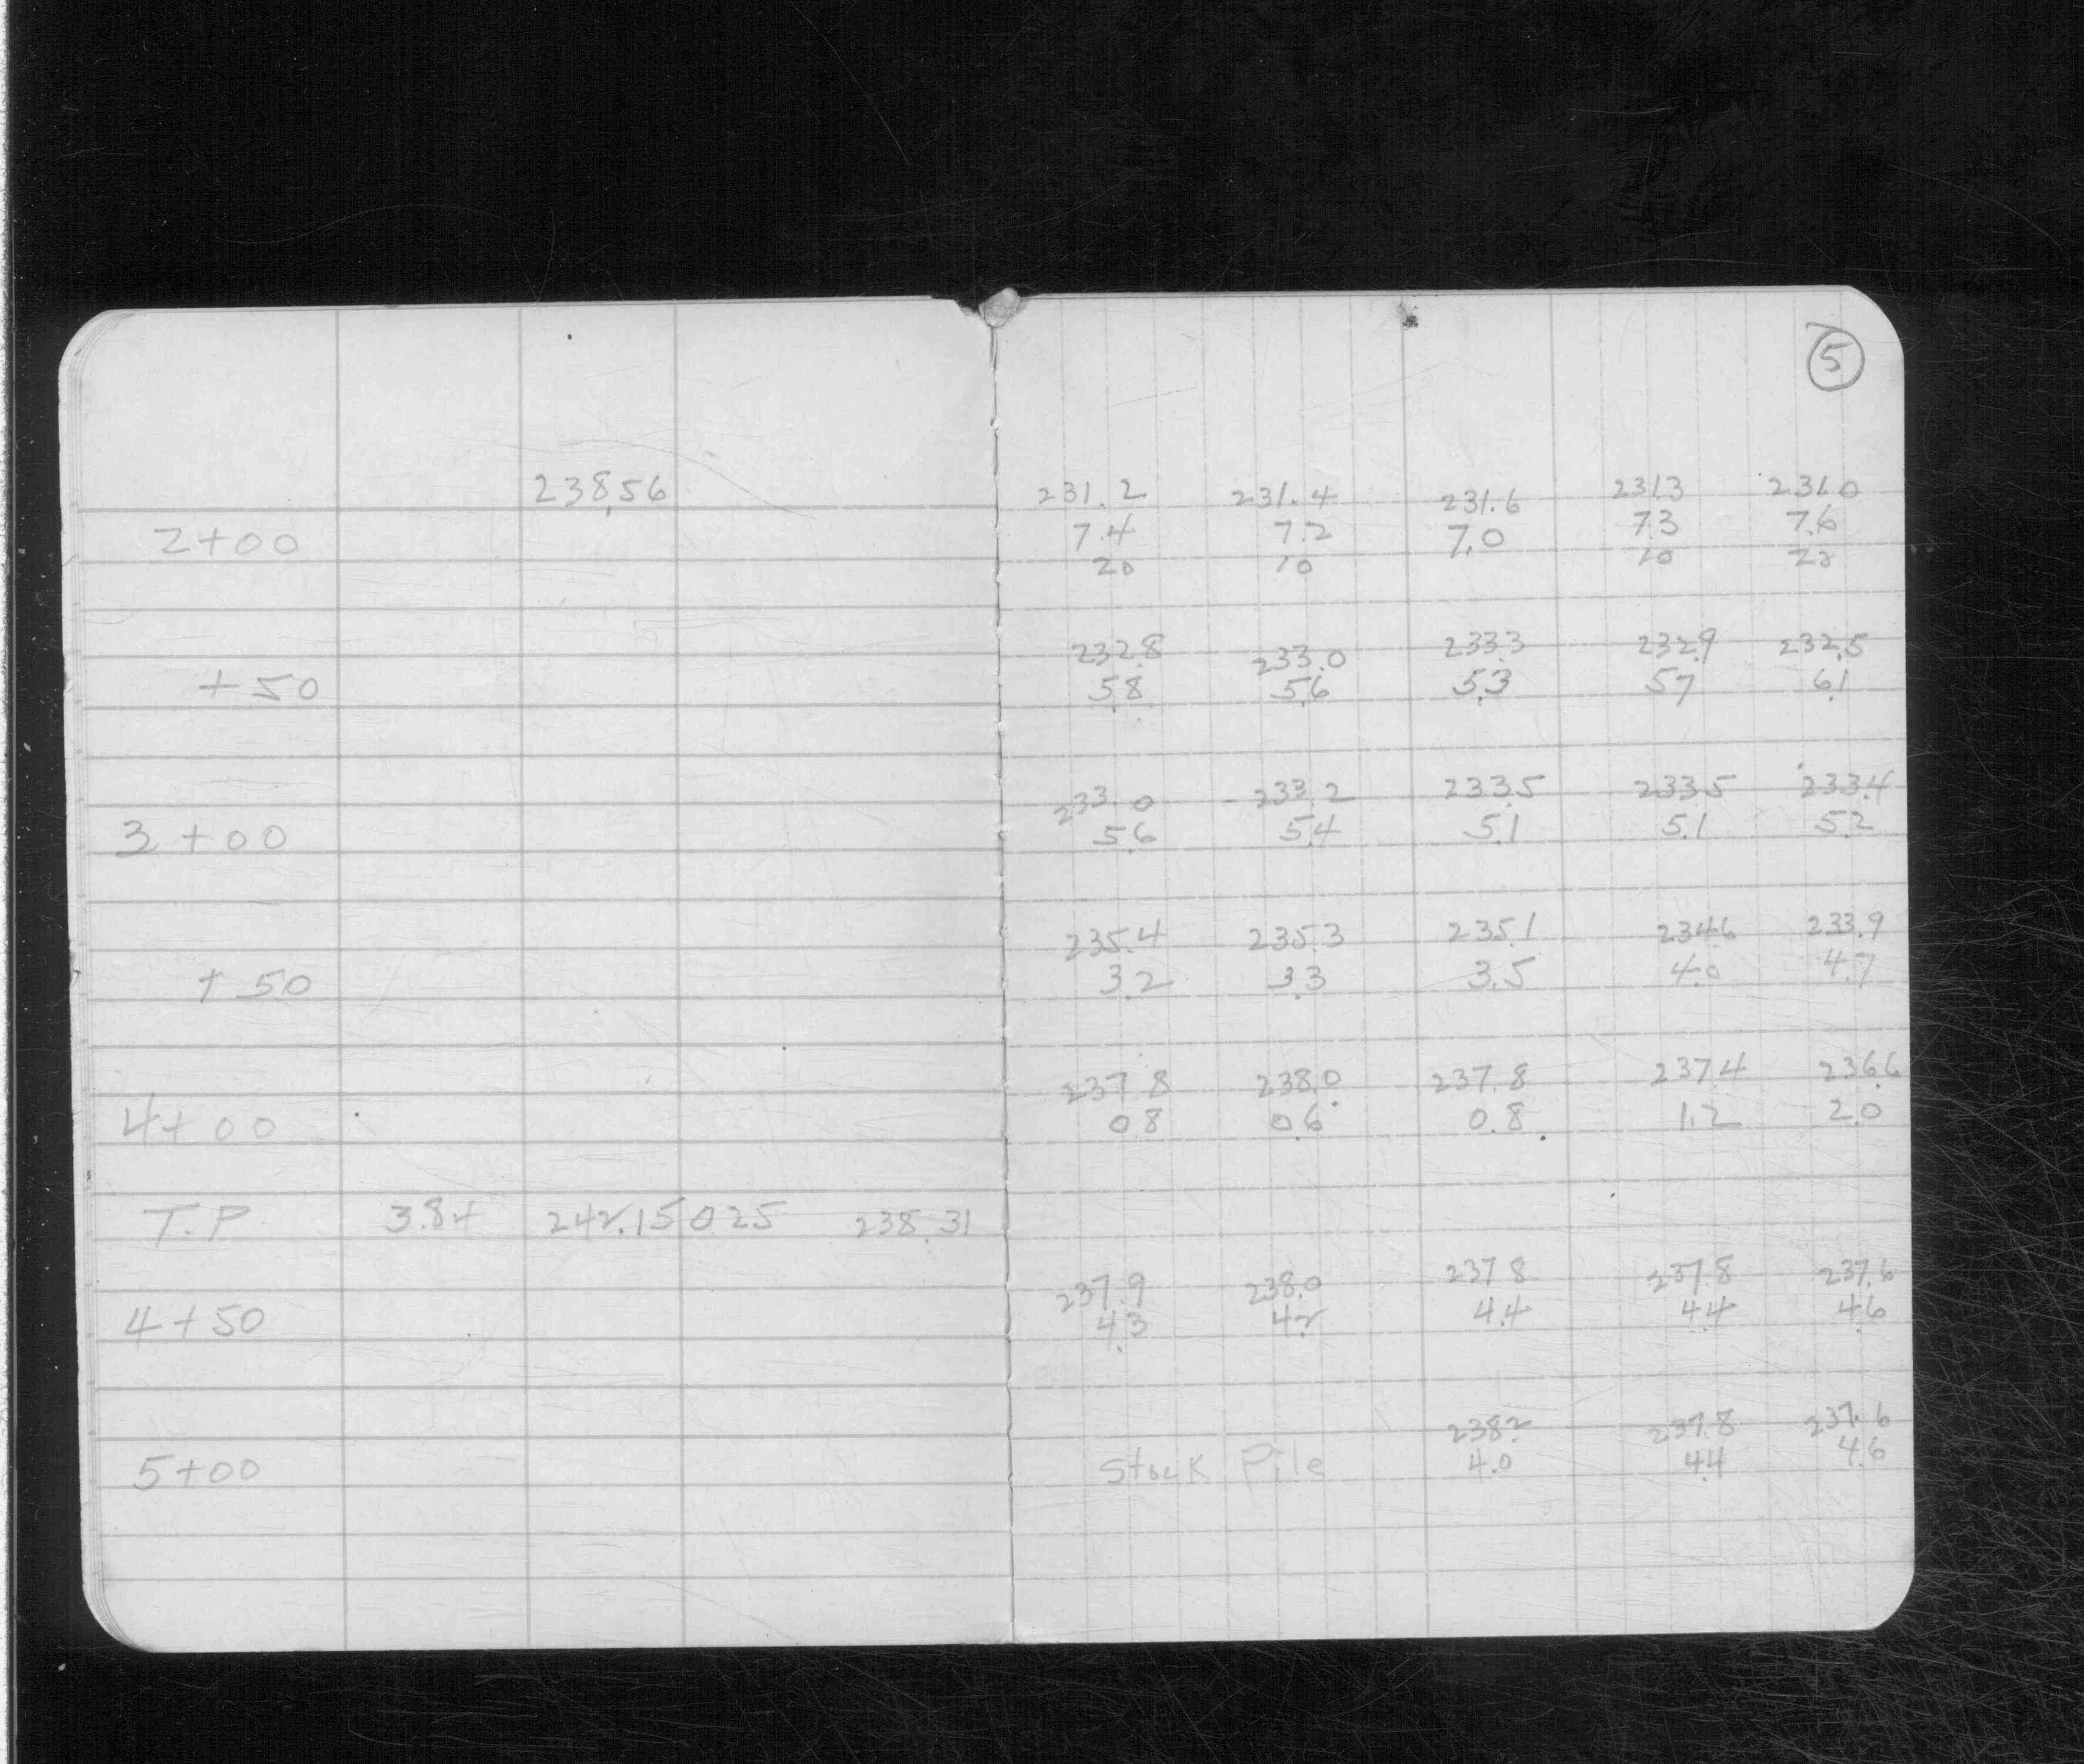 5
238.56 231.2 231.4 231.6 231.3 231.0
2+00 7.4 7.2 7.0 7.3 7.6
20 10 10 20
232.8 233.0 233.3 232.9 232.5
+50 5.8 5.6 5.3 5.7 6.1
233.0 233.2 233.5 233.5 233.4
3+00 5.6 5.4 5.1 5.1 5.2
235.4 235.3 235.1 234.6 233.9
+50 3.2 3.3 3.5 4.0 4.7
237.8 238.0 237.8 237.4 236.6
4+00 0.8 0.6 0.8 1.2 2.0
T.P 3.84 242.15 0.25 238.31
237.9 238.0 237.8 237.8 237.6
4+50 4.3 4.2 4.4 4.4 4.6
238.2 237.8 237.6
5+00 Stock Pile 4.0 4.4 4.6